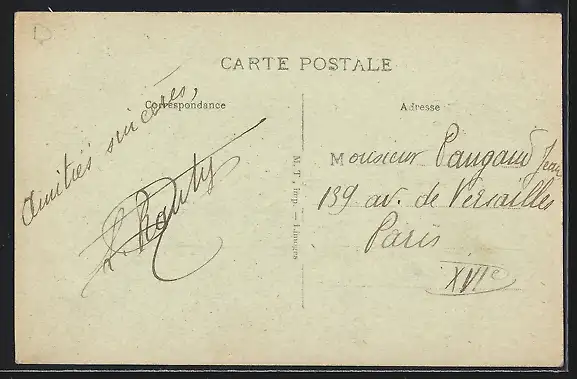 CARTE POSTALE
Correspondance
Adresse
Amitiés sincères,
M. T., Imp. — Limoges
Monsieur Paugam Jean
139 av. de Versailles
Paris
XVIe